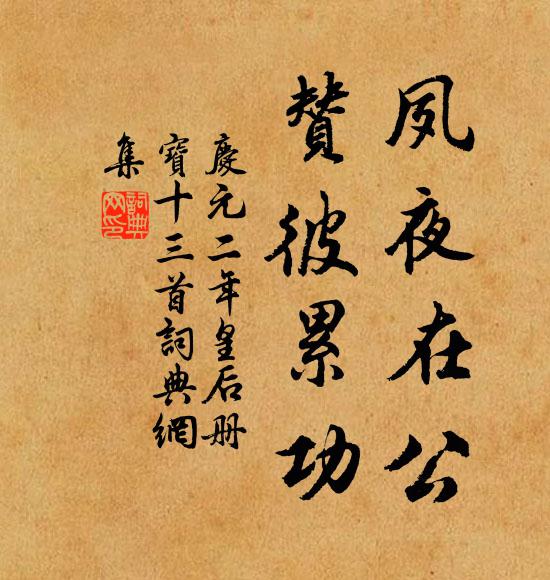 夙夜在公
贊彼累功
慶元二年皇后册
寶十三首詞典網
集
詞典
网印